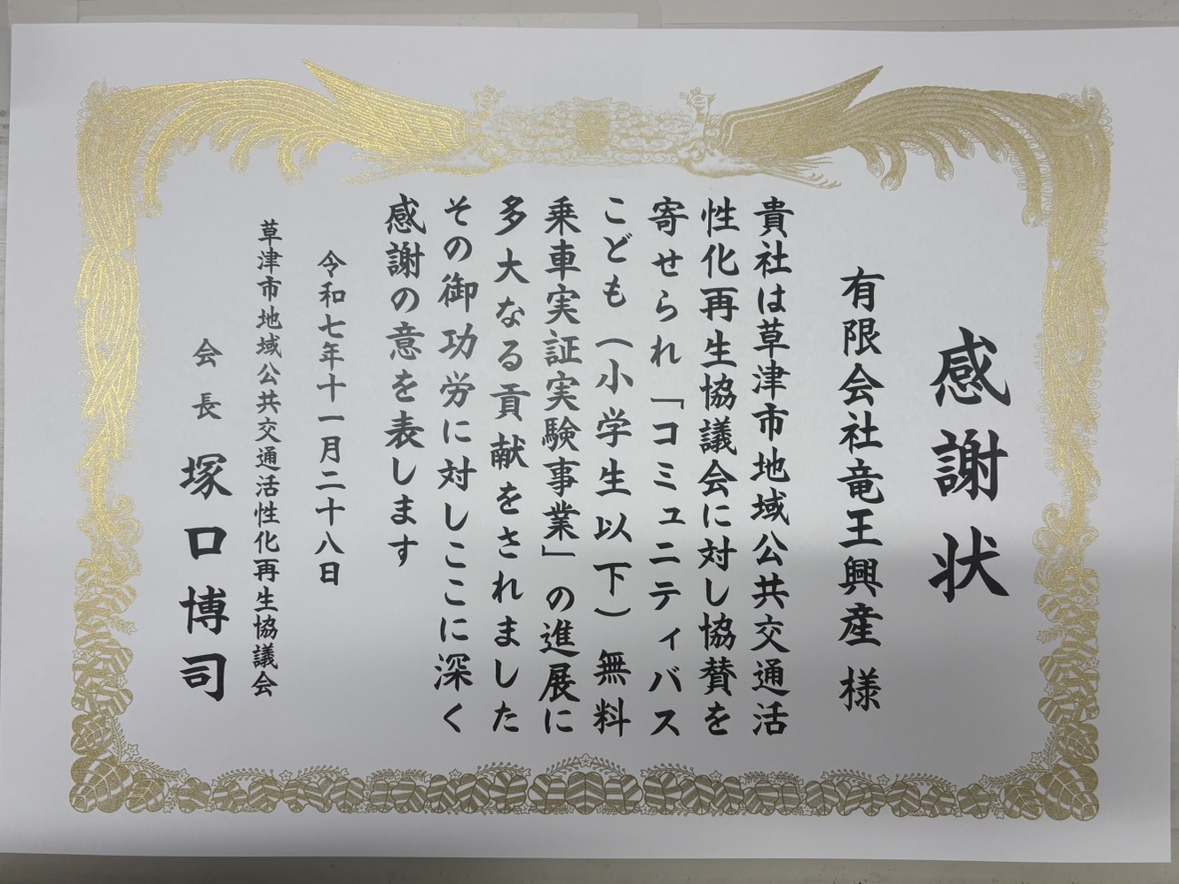 感謝状
有限会社竜王興産 様
貴社は草津市地域公共交通活
性化再生協議会に対し協賛を
寄せられ「コミュニティバス
こども（小学生以下）無料
乗車実証実験事業」の進展に
多大なる貢献をされました
その御功労に対しここに深く
感謝の意を表します
令和七年十一月二十八日
草津市地域公共交通活性化再生協議会
会長 塚口博司